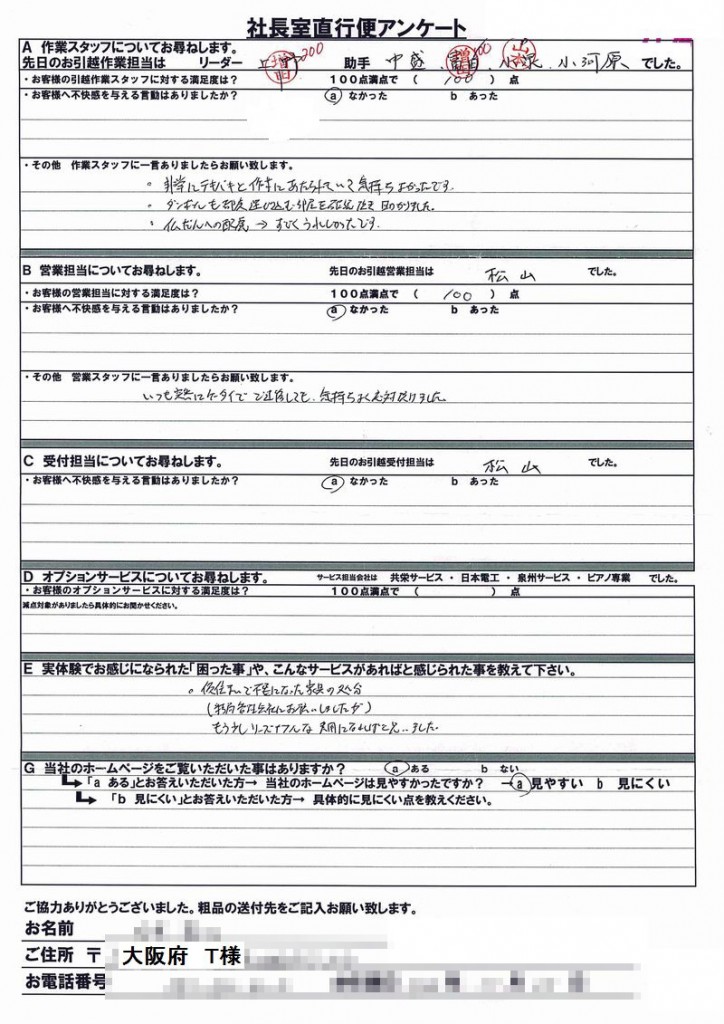 社長室直行便アンケート
A 作業スタッフについてお尋ねします。
先日のお引越作業担当は リーダー 助手 中盛 小河原 でした。
・お客様の引越作業スタッフに対する満足度は？ 100点満点で （ 100 ） 点
・お客様へ不快感を与える言動はありましたか？ a なかった b あった
・その他 作業スタッフに一言ありましたらお願い致します。
。非常にテキパキと作業にあたられていて気持ちよかったです。
。ダンボールも都度 助かりました。
。仏だんへの配慮 → すごくうれしかったです。
B 営業担当についてお尋ねします。 先日のお引越営業担当は 松山 でした。
・お客様の営業担当に対する満足度は？ 100点満点で （ 100 ） 点
・お客様へ不快感を与える言動はありましたか？ a なかった b あった
・その他 営業スタッフに一言ありましたらお願い致します。
いつも ケータイで ご連絡しても、気持ちよく
C 受付担当についてお尋ねします。 先日のお引越受付担当は 松山 でした。
・お客様へ不快感を与える言動はありましたか？ a なかった b あった
D オプションサービスについてお尋ねします。 サービス担当会社は 共栄サービス ・ 日本電工 ・ 泉州サービス ・ ピアノ専業 でした。
・お客様のオプションサービスに対する満足度は？ 100点満点で （ ） 点
減点対象がありましたら具体的にお聞かせください。
E 実体験でお感じになられた「困った事」や、こんなサービスがあればと感じられた事を教えて下さい。
。仮住まいで不要になった家具の処分
もう少しリーズナブルな
G 当社のホームページをご覧いただいた事はありますか？ a ある b ない
「a ある」とお答えいただいた方→ 当社のホームページは見やすかったですか？ →a 見やすい b 見にくい
「b 見にくい」とお答えいただいた方→ 具体的に見にくい点を教えください。
ご協力ありがとうございました。粗品の送付先をご記入お願い致します。
お名前
ご住所 〒 大阪府 T様
お電話番号